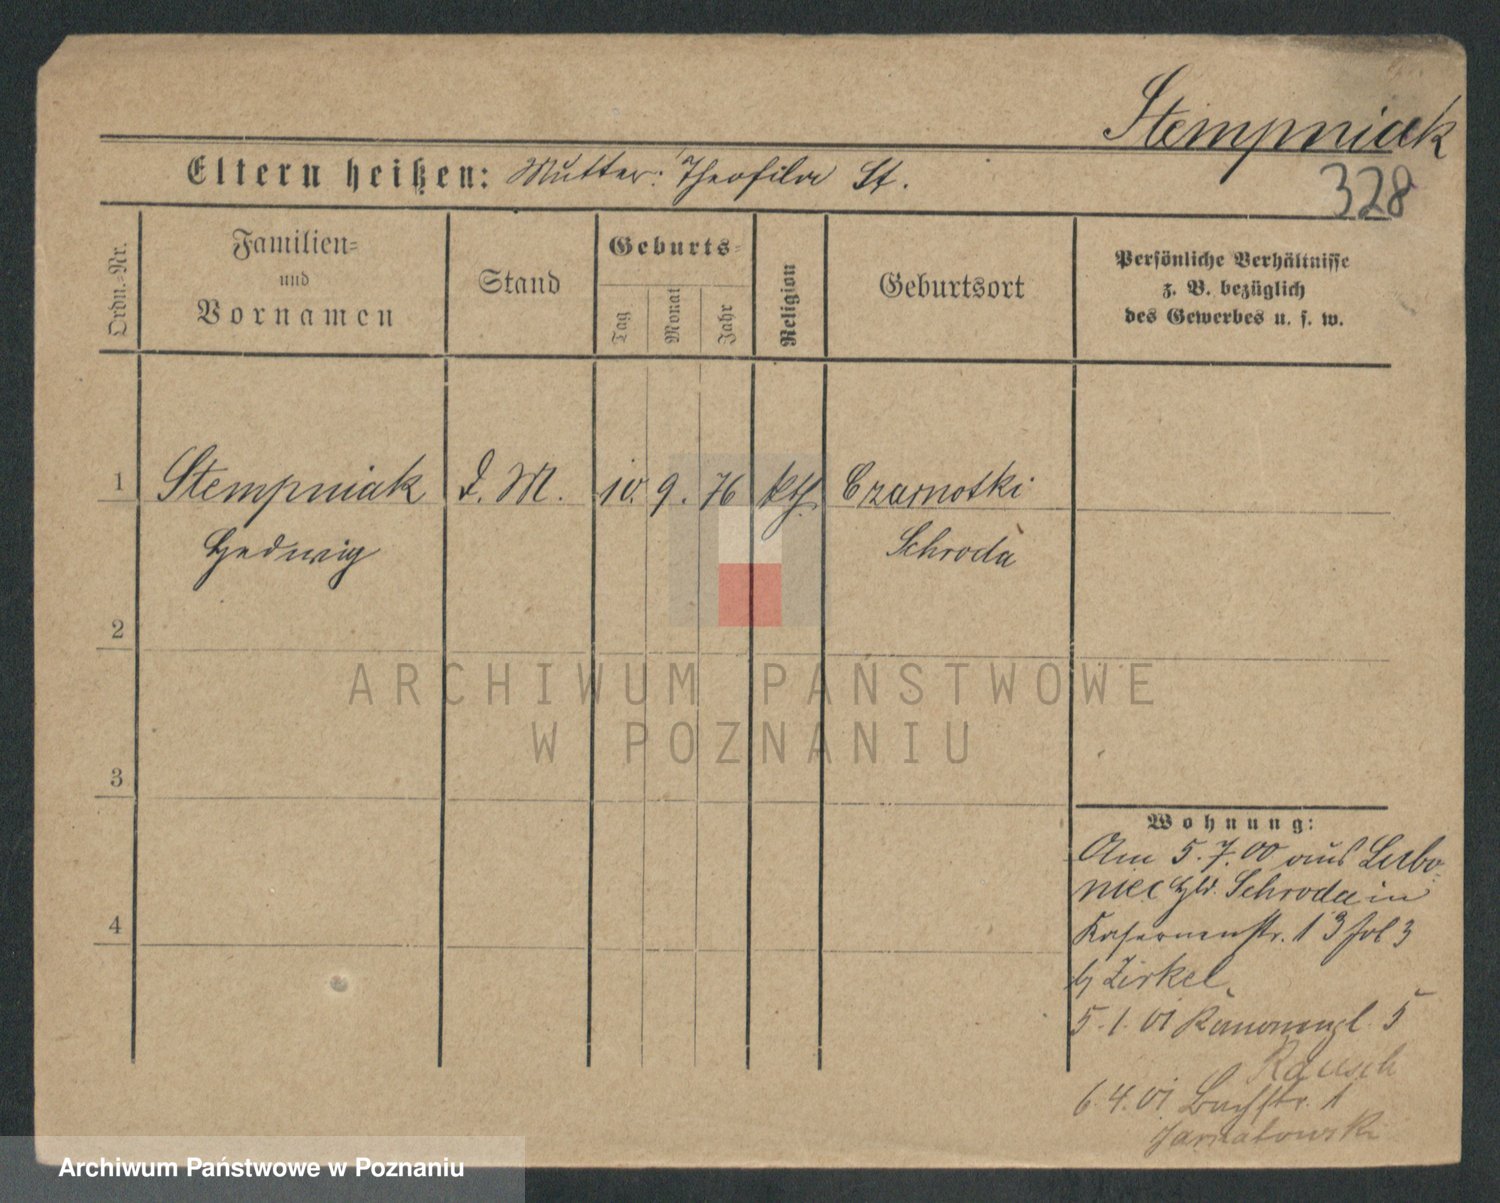 Stempniak
328
Eltern heißen: Mutter: Theofila St.
Ordn.-Nr.
Familien-
und
Vornamen
Stand
Geburts-
Tag
Monat
Jahr
Religion
Geburtsort
Persönliche Verhältnisse
z. B. bezüglich
des Gewerbes u. s. w.
1 Stempniak D. M. 10. 9. 76 kth. Czarnotki
Hedwig Schroda
2
3
4
Wohnung:
Am 5.7.00 aus Lubo-
niec Schroda in
Kasernenstr. 13 3
b/ Zirkel.
5.1.01 Kanonenpl. 5
Rausch
6.4.01 1
Jarnatowski
ARCHIWUM PAŃSTWOWE
W POZNANIU
Archiwum Państwowe w Poznaniu